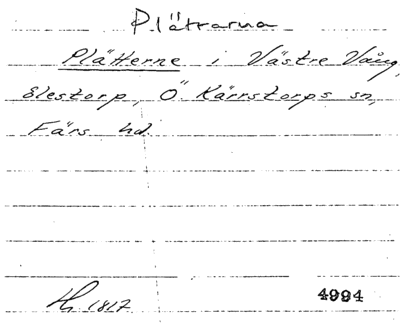 Plättarna
Plätterne i Västre Vång,
Elestorp, Ö Kärrstorps sn,
Färs hd.
1817 4994